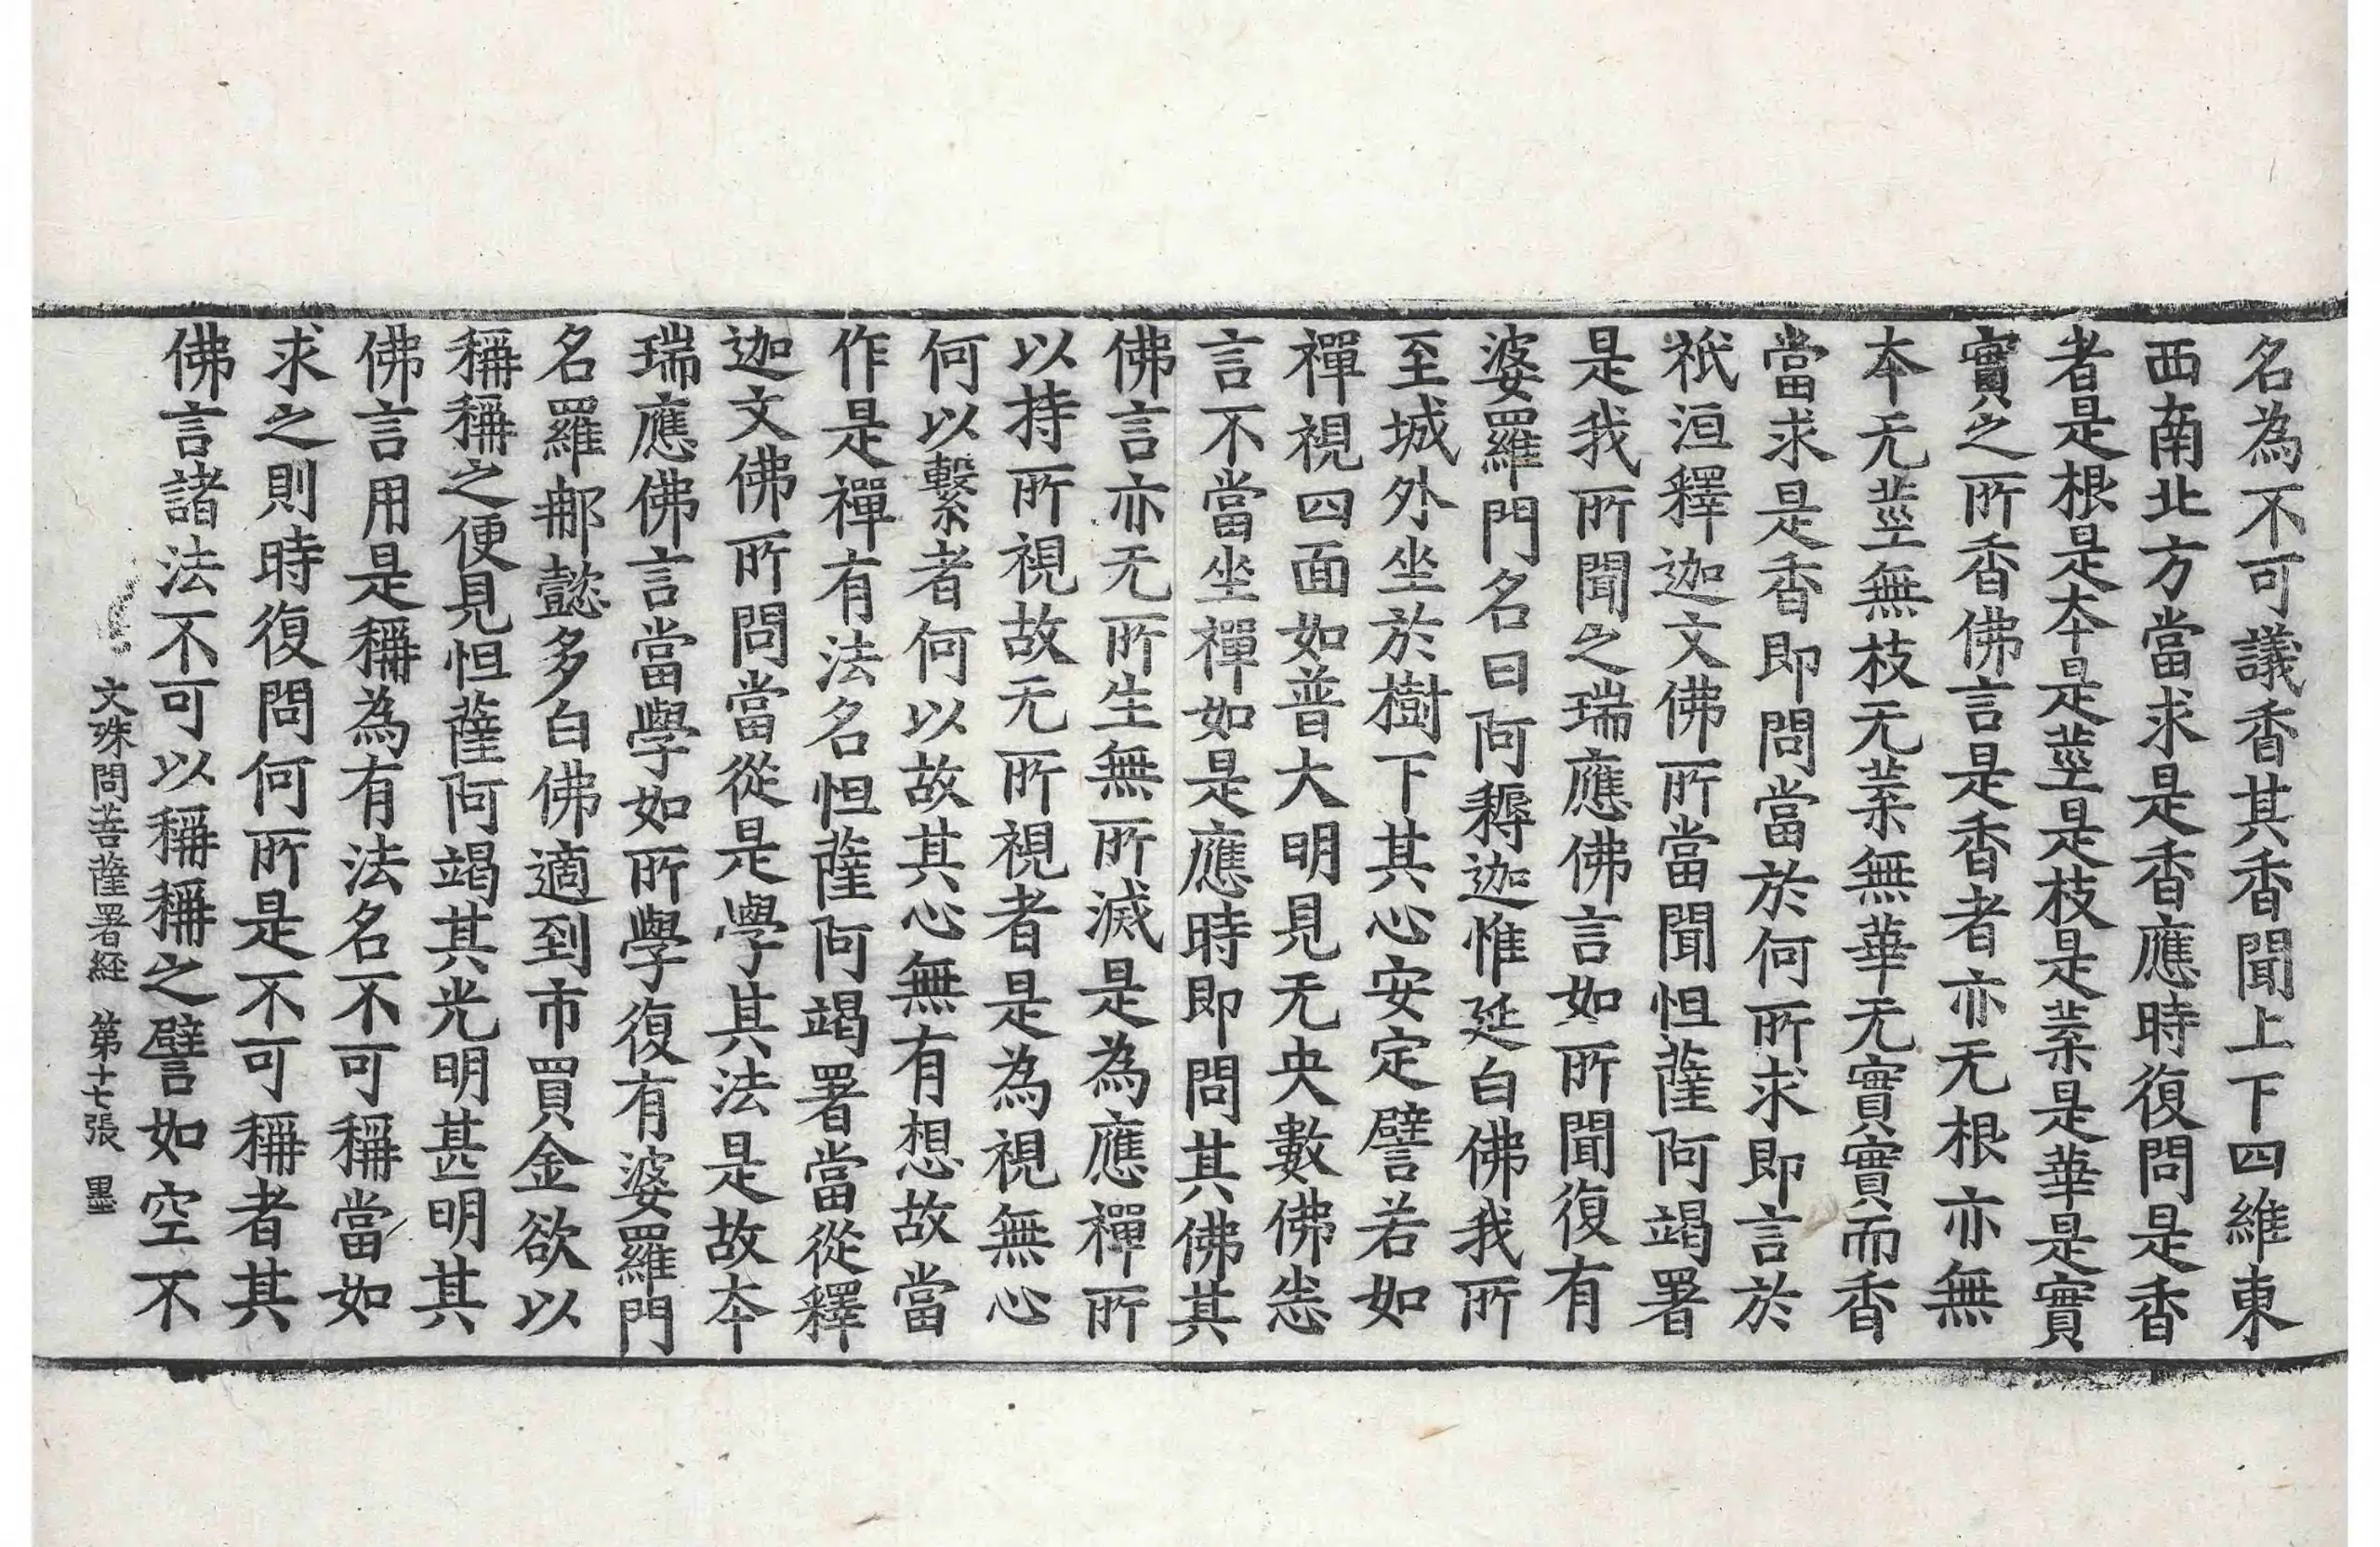 名為不可議香其香聞上下四維東
西南北方當求是香應時復問是香
者是根是本是莖是枝是葉是華是實
實之所香佛言是香者亦无根亦無
本无莖無枝无葉無華无實實而香
當求是香即問當於何所求即言於
祇洹釋迦文佛所當聞怛薩阿竭署
是我所聞之瑞應佛言如所聞復有
婆羅門名曰阿耨迦惟延白佛我所
至城外坐於樹下其心安定譬若如
禪視四面如普大明見无央數佛悉
言不當坐禪如是應時即問其佛其
佛言亦无所生無所滅是為應禪所
以持所視故无所視者是為視無心
何以繫者何以故其心無有想故當
作是禪有法名怛薩阿竭署當從釋
迦文佛所問當從是學其法是故本
瑞應佛言當學如所學復有婆羅門
名羅那懿多白佛適到市買金欲以
稱稱之便見怛薩阿竭其光明甚明其
佛言用是稱為有法名不可稱當如
求之則時復問何所是不可稱者其
佛言諸法不可以稱稱之譬如空不
文殊問菩薩署経 第十七張 墨